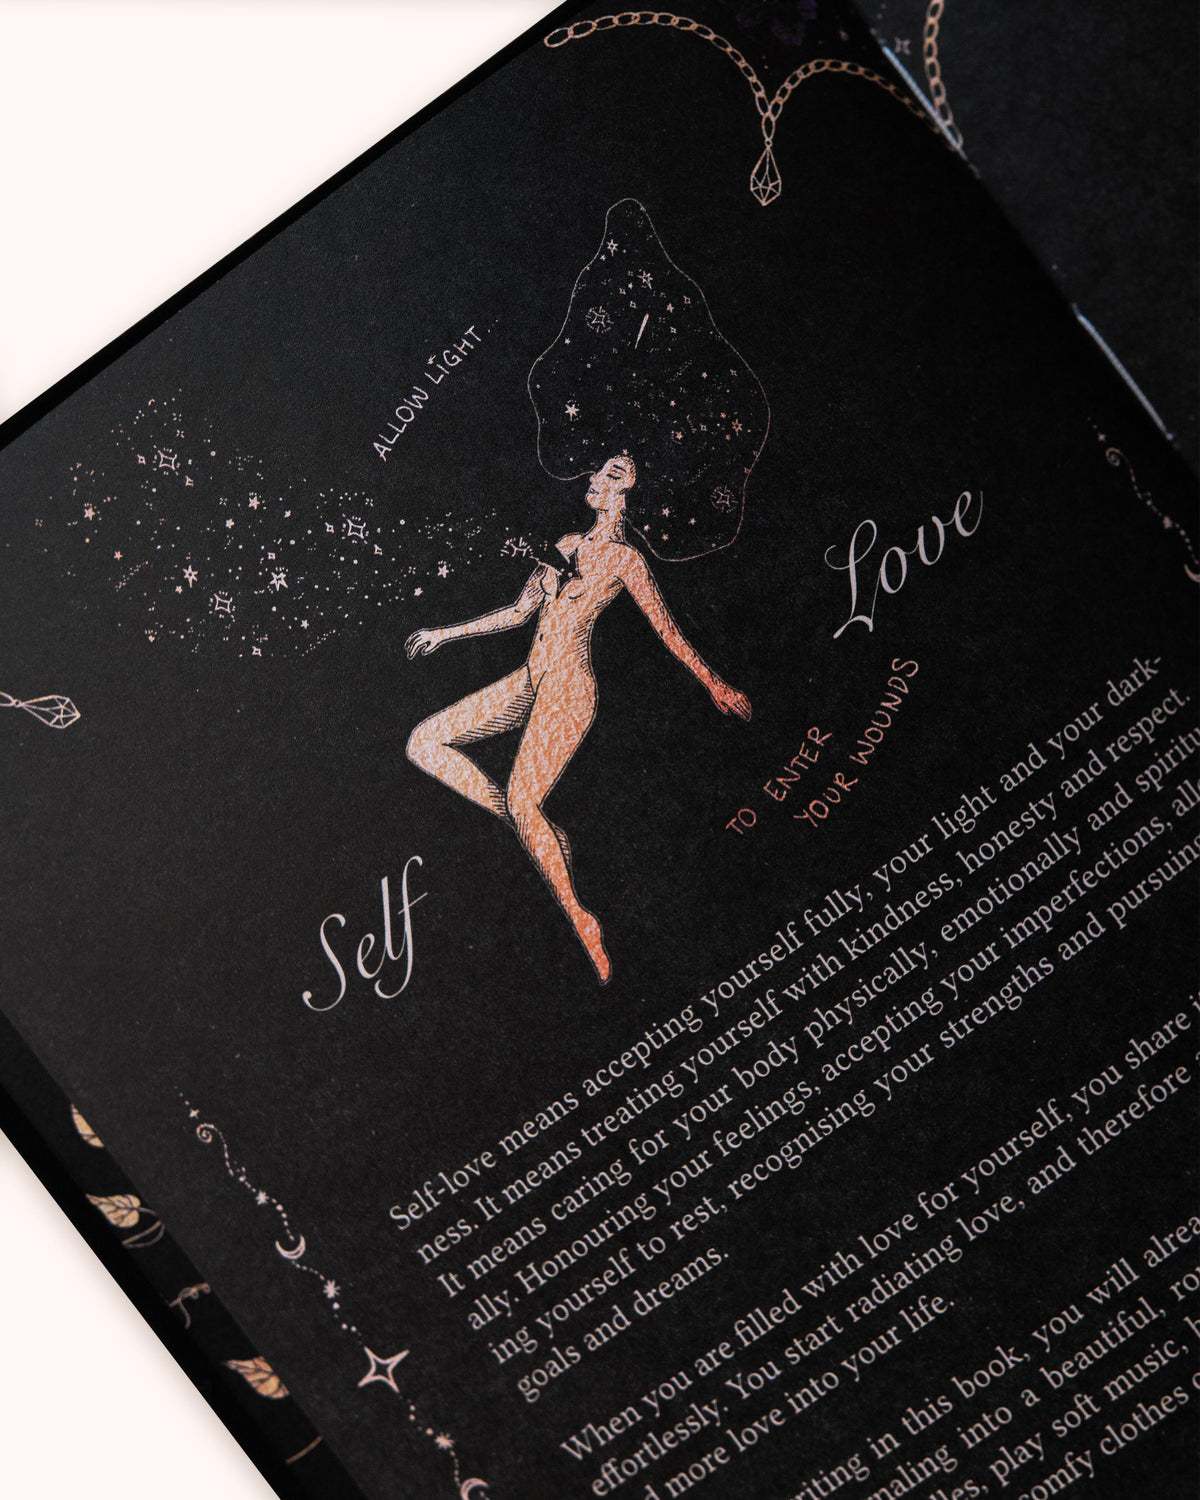 ALLOW LIGHT...
Love
TO ENTER
YOUR WOUNDS
Self
Self-love means accepting yourself fully, your light and your dark-
ness. It means treating yourself with kindness, honesty and respect.
It means caring for your body physically, emotionally and spiritu
ally. Honouring your feelings, accepting your imperfections, all
ing yourself to rest, recognising your strengths and pursuing
goals and dreams.
When you are filled with love for yourself, you share i
effortlessly. You start radiating love, and therefore
d more love into your life.
riting in this book, you will alrea
naling into a beautiful, ro
lles, play soft music,
comfy clothes